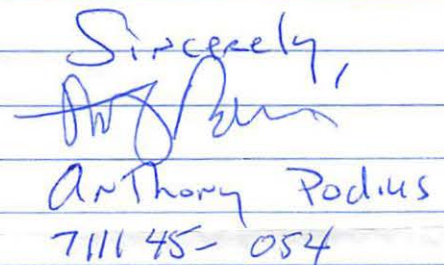 Sincerely,
Anthony Podius
711145-054